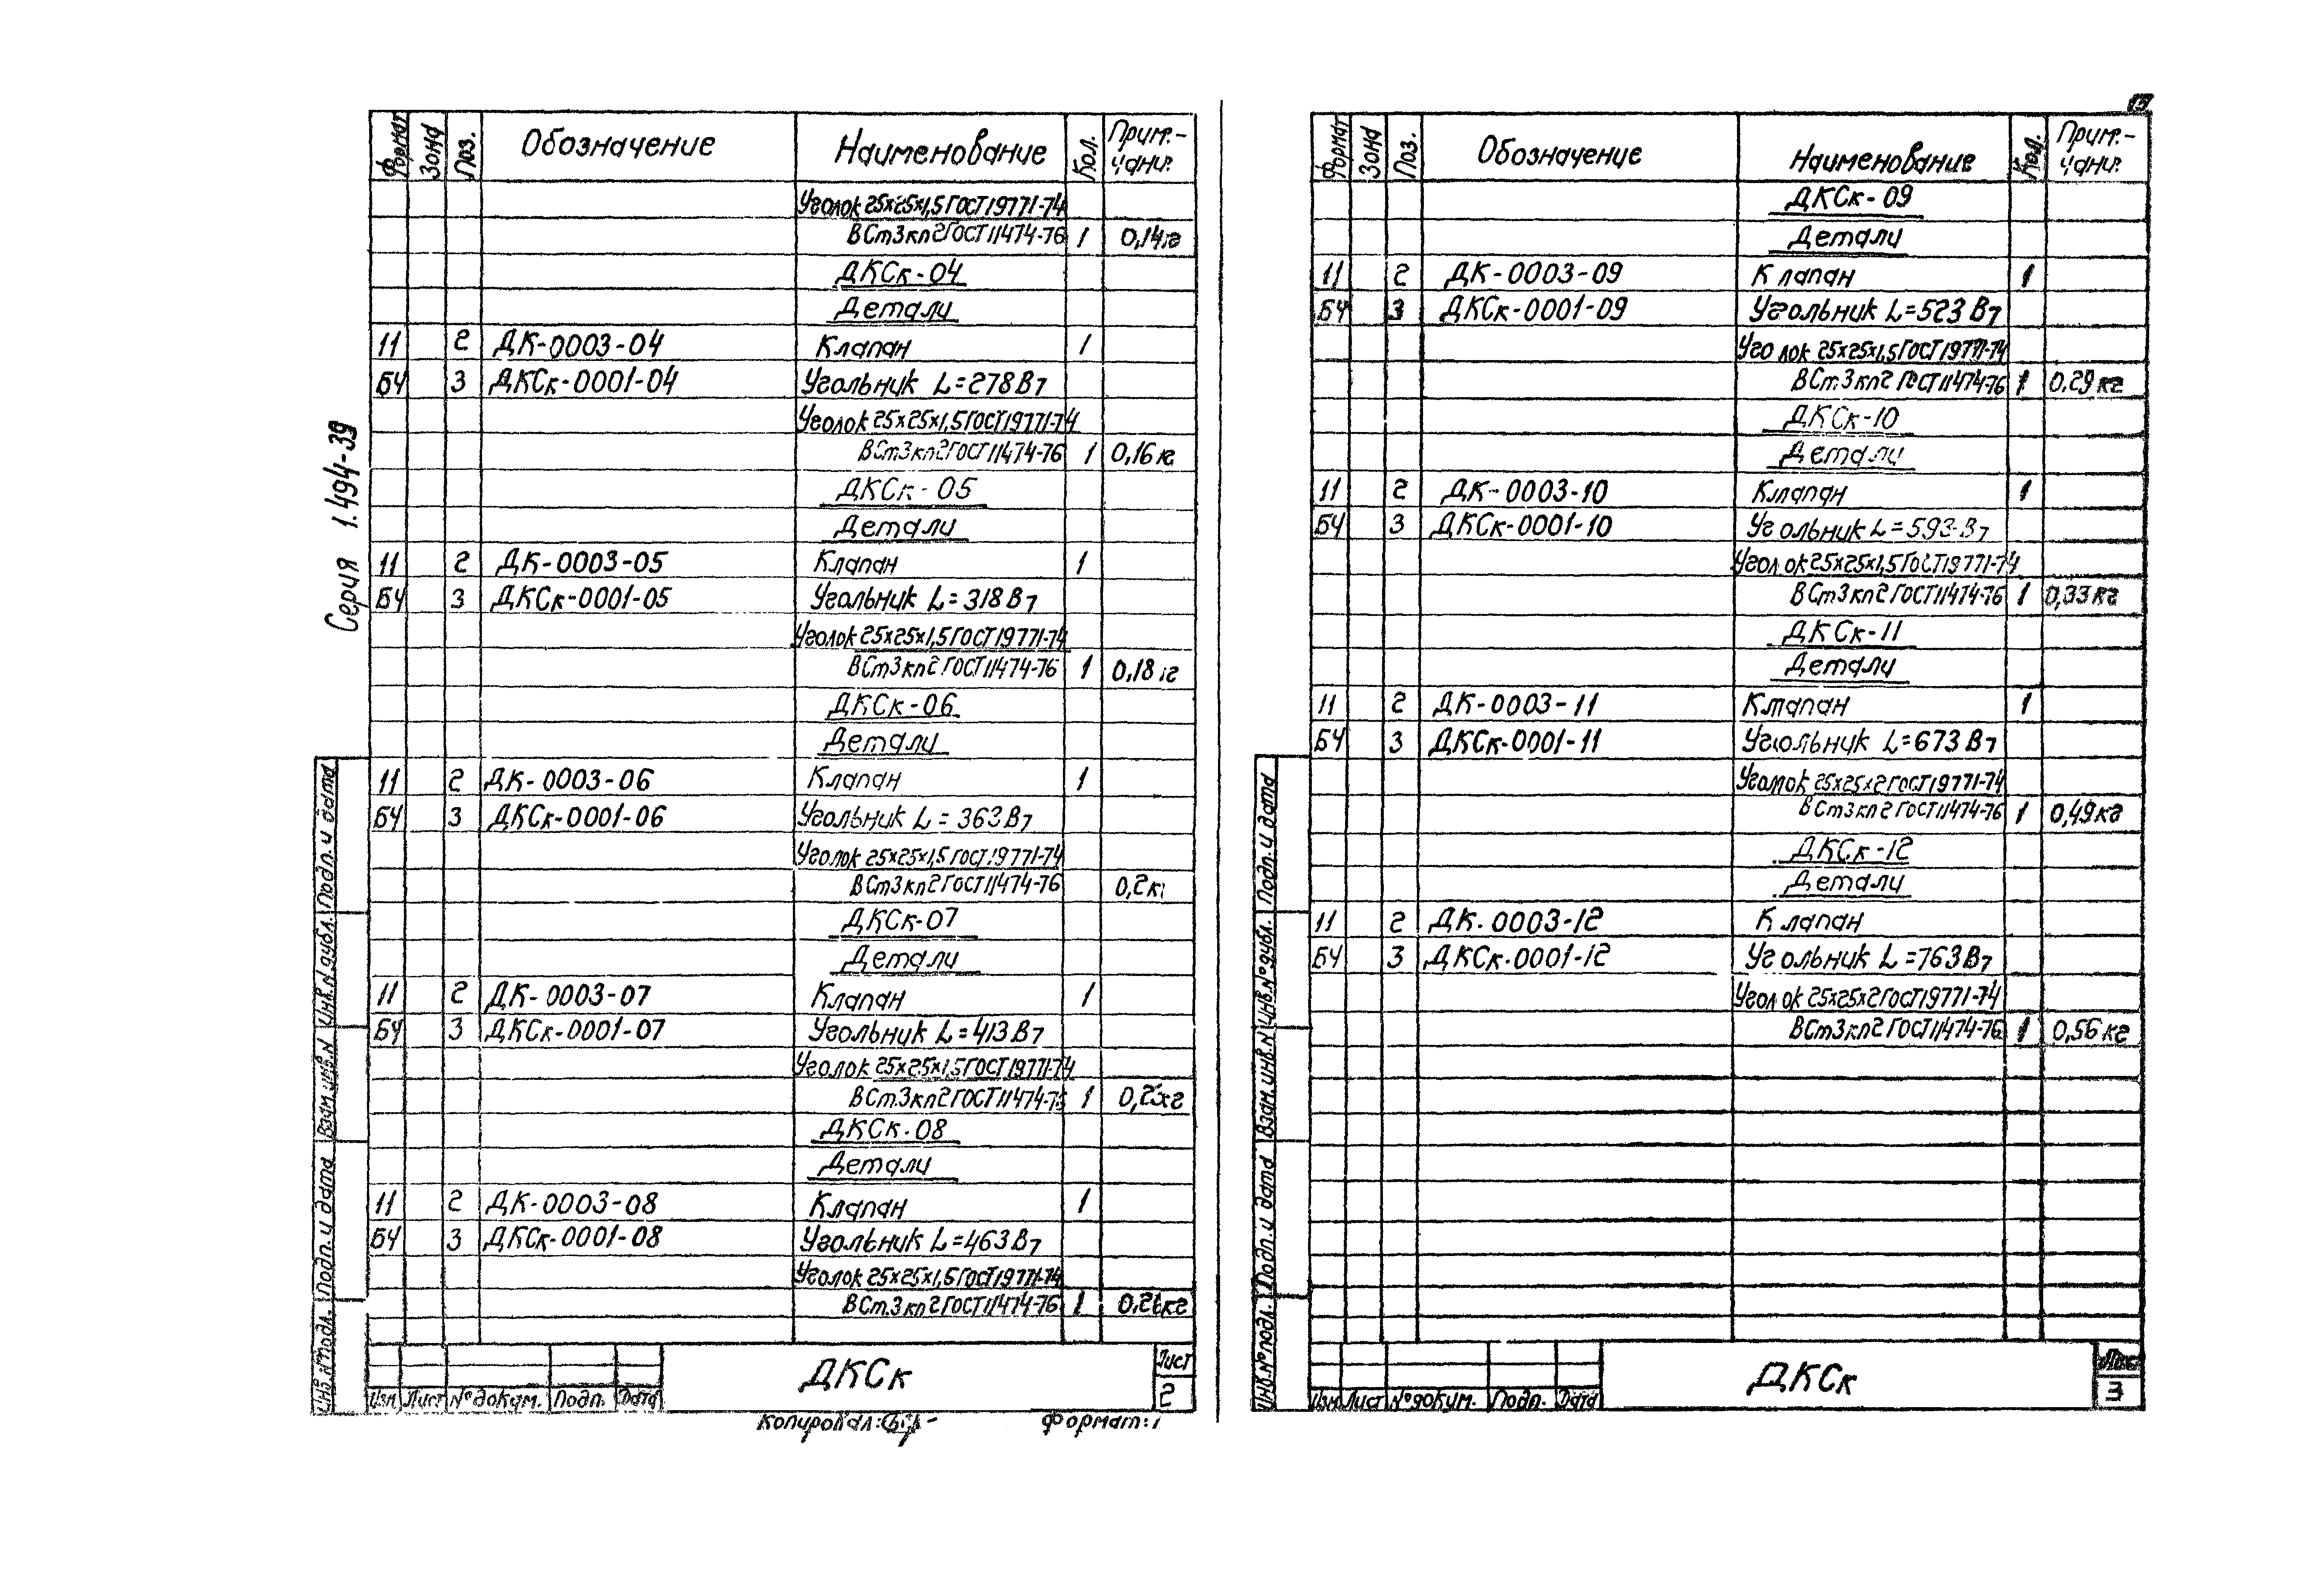 Серия 1.494-39
Формат Зона Поз. Обозначение Наименование Кол. Прим.-чани:
Уголок 25х25х1,5 ГОСТ 19771-74
ВСт3кп2 ГОСТ 11474-76 1 0,14
ДКСк-04
Детали
11 2 ДК-0003-04 Клапан 1
БЧ 3 ДКСк-0001-04 Угольник L=278В7
Уголок 25х25х1,5 ГОСТ 19771-74
ВСт3кп2 ГОСТ 11474-76 1 0,16 кг
ДКСк-05
Детали
11 2 ДК-0003-05 Клапан 1
БЧ 3 ДКСк-0001-05 Угольник L=318В7
Уголок 25х25х1,5 ГОСТ 19771-74
ВСт3кп2 ГОСТ 11474-76 1 0,18
ДКСк-06
Детали
11 2 ДК-0003-06 Клапан 1
БЧ 3 ДКСк-0001-06 Угольник L=363В7
Уголок 25х25х1,5 ГОСТ 19771-74
ВСт3кп2 ГОСТ 11474-76 0,2
ДКСк-07
Детали
11 2 ДК-0003-07 Клапан 1
БЧ 3 ДКСк-0001-07 Угольник L=413В7
Уголок 25х25х1,5 ГОСТ 19771-74
ВСт.3кп2 ГОСТ 11474-76 1
ДКСк-08
Детали
11 2 ДК-0003-08 Клапан 1
БЧ 3 ДКСк-0001-08 Угольник L=463В7
Уголок 25х25х1,5 ГОСТ 19771-74
ВСт.3кп2 ГОСТ 11474-76 1
Инв.№ подл. Подп. и дата Взам.инв.N Инв.N дубл. Подп. и дата
Изм Лист № докум. Подп. Дата
ДКСк
Лист
2
Копировал:
Формат:
Формат Зона Поз. Обозначение Наименование Кол. Прим.-чани:
ДКСк-09
Детали
11 2 ДК-0003-09 Клапан 1
БЧ 3 ДКСк-0001-09 Угольник L=523 В7
Уголок 25х25х1,5 ГОСТ 19771-74
ВСт.3кп2 ГОСТ 11474-76 1 0,29 кг
ДКСк-10
Детали
11 2 ДК-0003-10 Клапан 1
БЧ 3 ДКСк-0001-10 Угольник L=593-В7
Уголок 25х25х1,5 ГОСТ 19771-74
ВСт3кп2 ГОСТ 11474-76 1 0,33 кг
ДКСк-11
Детали
11 2 ДК-0003-11 Клапан 1
БЧ 3 ДКСк-0001-11 Угольник L=673 В7
Уголок 25х25х2 ГОСТ 19771-74
ВСт3кп2 ГОСТ 11474-76 1 0,49 кг
ДКСк-12
Детали
11 2 ДК.0003-12 Клапан
БЧ 3 ДКСк.0001-12 Угольник L=763В7
Уголок 25х25х2 ГОСТ 19771-74
ВСт3кп2 ГОСТ 11474-76 1 0,56 кг
Инв.№ подл. Подп. и дата Взам.инв.N Инв.№ дубл. Подп. и дата
Изм Лист № докум. Подп. Дата
ДКСк
Лист
3